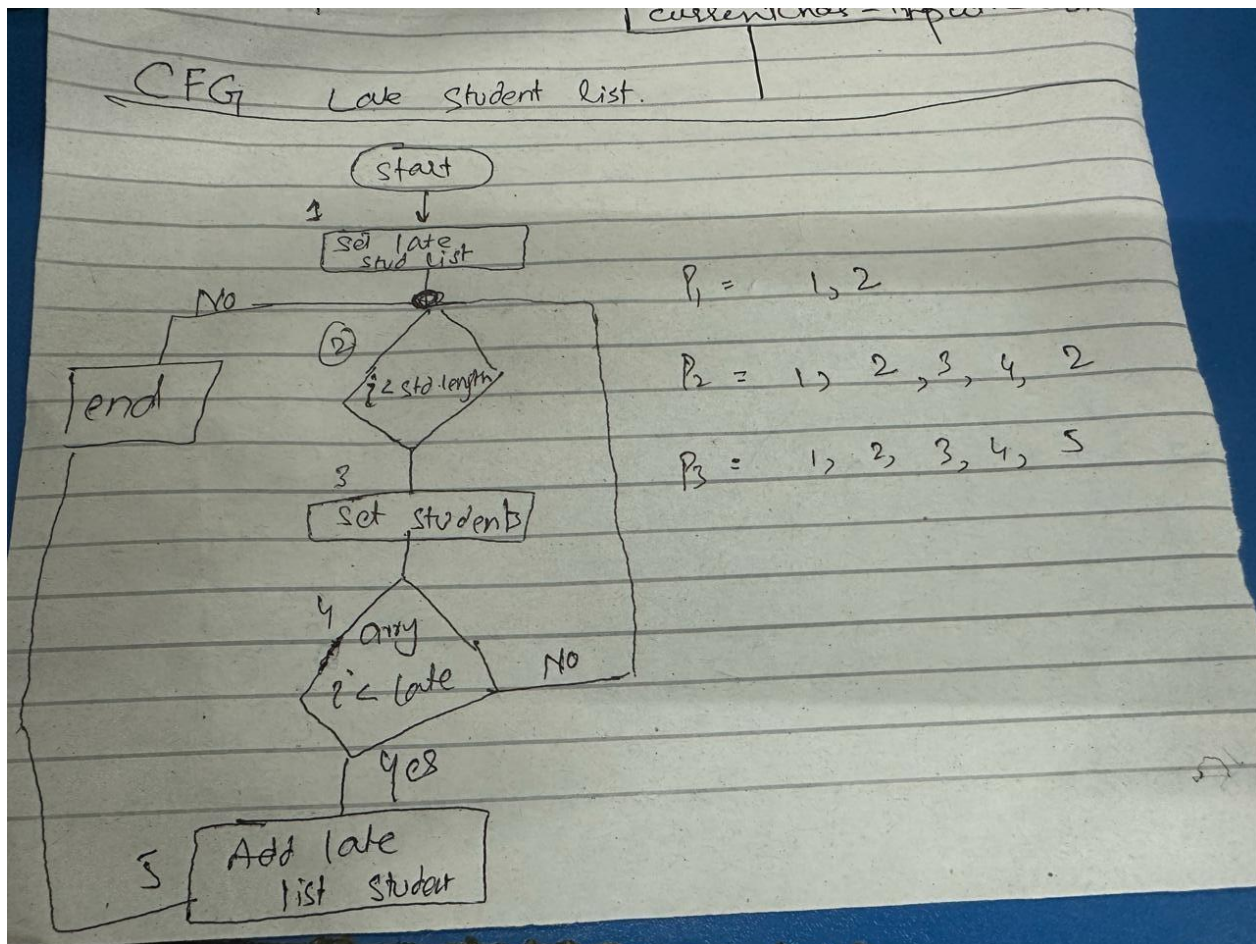 CFG Late Student list.
start
1
Set late
stud list
No
2
i < std.length
end
3
Set students
4
arry
i < late
No
Yes
5
Add late
list student
P1 = 1, 2
P2 = 1, 2, 3, 4, 2
P3 = 1, 2, 3, 4, 5